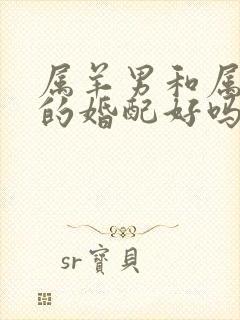 属羊男和属
的婚配好吗
sr寳貝